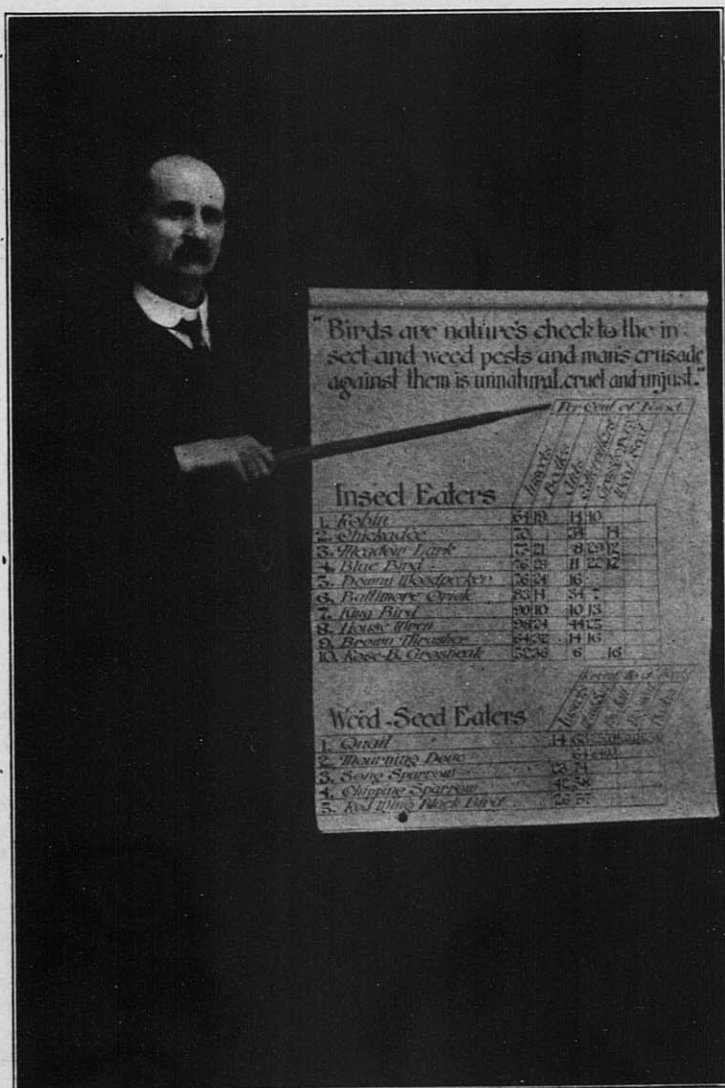 "Birds are nature's check to the in
sect and weed pests and man's crusade
against them is unnatural, cruel and unjust."
Per Cent of Food
Insects Beetles Ants Caterpillars Grasshoppers Weed Seed
Insect Eaters
1. Robin 64 19 14 10
2. Chickadee 70 34 14
3. Meadow Lark 73 21 8 29 12
4. Blue Bird 76 28 11 22 12
5. Downy Woodpecker 76 24 16
6. Baltimore Oriole 83 14 34 7
7. King Bird 90 10 10 13
8. House Wren 98 24 44 25
9. Brown Thrasher 64 32 14 16
10. Rose-B. Grosbeak 52 36 6 16
Weed-Seed Eaters
Insects
1. Quail 14 63
2. Mourning Dove 64
3. Song Sparrow
4. Chipping Sparrow
5. Red Wing Black Bird